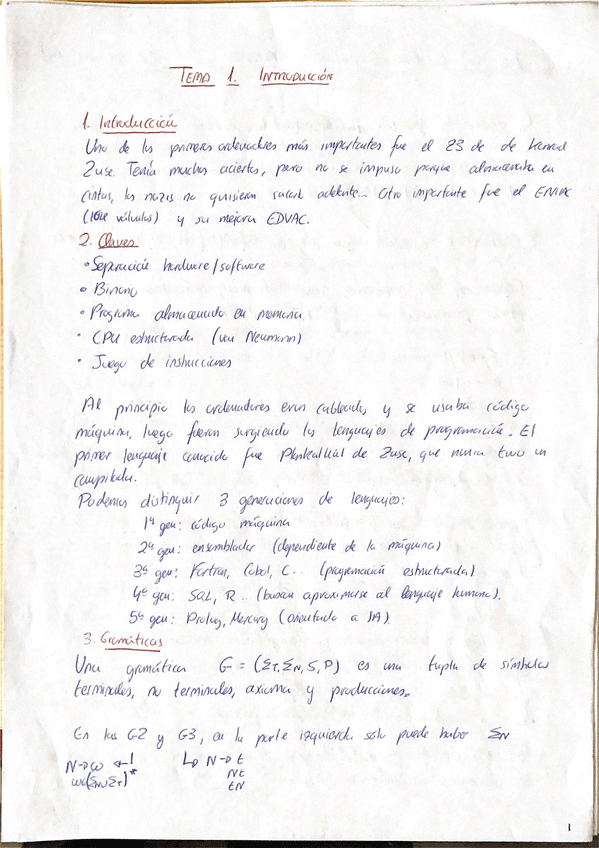 TEMA 1. INTRODUCCIÓN
1. Introducción
Uno de los primeros ordenadores más importantes fue el Z3 de de Konrad
Zuse. Tenía muchos aciertos, pero no se impuso porque almacenaba en
cintas, los nazis no quisieron sacarlo adelante... Otro importante fue el ENIAC
(válvulas) y su mejora EDVAC.
2. Claves
• Separación hardware/software
• Binario
• Programa almacenado en memoria
• CPU estructurada (von Neumann)
• Juego de instrucciones
Al principio los ordenadores eran cableados y se usaba código
máquina, luego fueron surgiendo los lenguajes de programación. El
primer lenguaje conocido fue Plankalkül de Zuse, que nunca tuvo un
compilador.
Podemos distinguir 3 generaciones de lenguajes:
1ª gen: código máquina
2ª gen: ensamblador (dependiente de la máquina)
3ª gen: Fortran, Cobol, C... (programación estructurada)
4ª gen: SQL, R... (buscan aproximarse al lenguaje humano).
5ª gen: Prolog, Mercury (orientado a IA)
3. Gramáticas
Una gramática G = (Σт, Σɴ, S, P) es una tupla de símbolos
terminales, no terminales, axioma y producciones.
En las G2 y G3, en la parte izquierda solo puede haber Σɴ
N→ω ↵ ↳ N→t
ω∈(Σɴ∪Σт)* Nt
tN
1